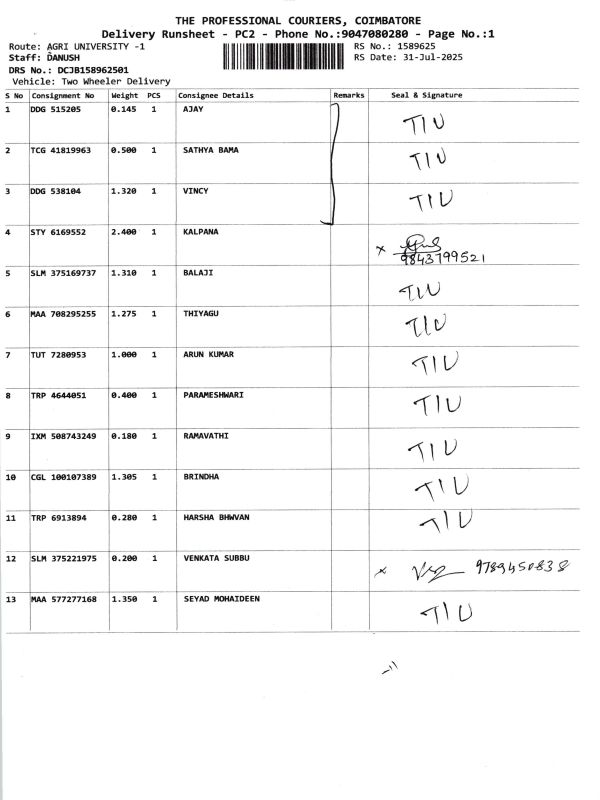 THE PROFESSIONAL COURIERS, COIMBATORE
Delivery Runsheet - PC2 - Phone No.:9047080280 - Page No.:1
Route: AGRI UNIVERSITY -1 RS No.: 1589625
Staff: DANUSH RS Date: 31-Jul-2025
DRS No.: DCJB158962501
Vehicle: Two Wheeler Delivery
S No Consignment No Weight PCS Consignee Details Remarks Seal & Signature
1 DDG 515205 0.145 1 AJAY TIU
2 TCG 41819963 0.500 1 SATHYA BAMA TIU
3 DDG 538104 1.320 1 VINCY TIU
4 STY 6169552 2.400 1 KALPANA x
9843799521
5 SLM 375169737 1.310 1 BALAJI TIU
6 MAA 708295255 1.275 1 THIYAGU TIU
7 TUT 7280953 1.000 1 ARUN KUMAR TIU
8 TRP 4644051 0.400 1 PARAMESHWARI TIU
9 IXM 508743249 0.180 1 RAMAVATHI TIU
10 CGL 100107389 1.305 1 BRINDHA TIU
11 TRP 6913894 0.280 1 HARSHA BHWVAN TIU
12 SLM 375221975 0.200 1 VENKATA SUBBU x 9789450838
13 MAA 577277168 1.350 1 SEYAD MOHAIDEEN TIU